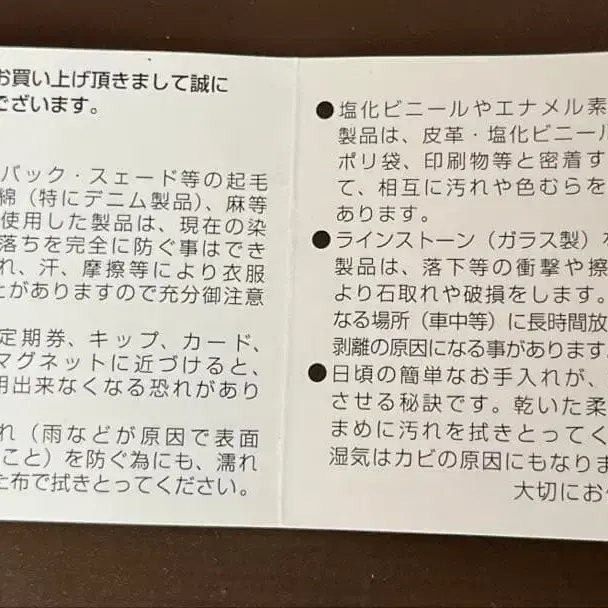 お買い上げ頂きまして誠に
ございます。
バック・スエード等の起毛
綿（特にデニム製品）、麻等
使用した製品は、現在の染
落ちを完全に防ぐ事はでき
れ、汗、摩擦等により衣服
がありますので充分御注意
定期券、キップ、カード、
マグネットに近づけると、
用出来なくなる恐れがあり
れ（雨などが原因で表面
こと）を防ぐ為にも、濡れ
布で拭きとってください。
●塩化ビニールやエナメル素
製品は、皮革・塩化ビニール
ポリ袋、印刷物等と密着す
て、相互に汚れや色むらを
あります。
●ラインストーン（ガラス製）
製品は、落下等の衝撃や擦
より石取れや破損をします。
なる場所（車中等）に長時間放
剥離の原因になる事があります
●日頃の簡単なお手入れが、
させる秘訣です。乾いた柔
まめに汚れを拭きとってく
湿気はカビの原因にもなりま
大切にお